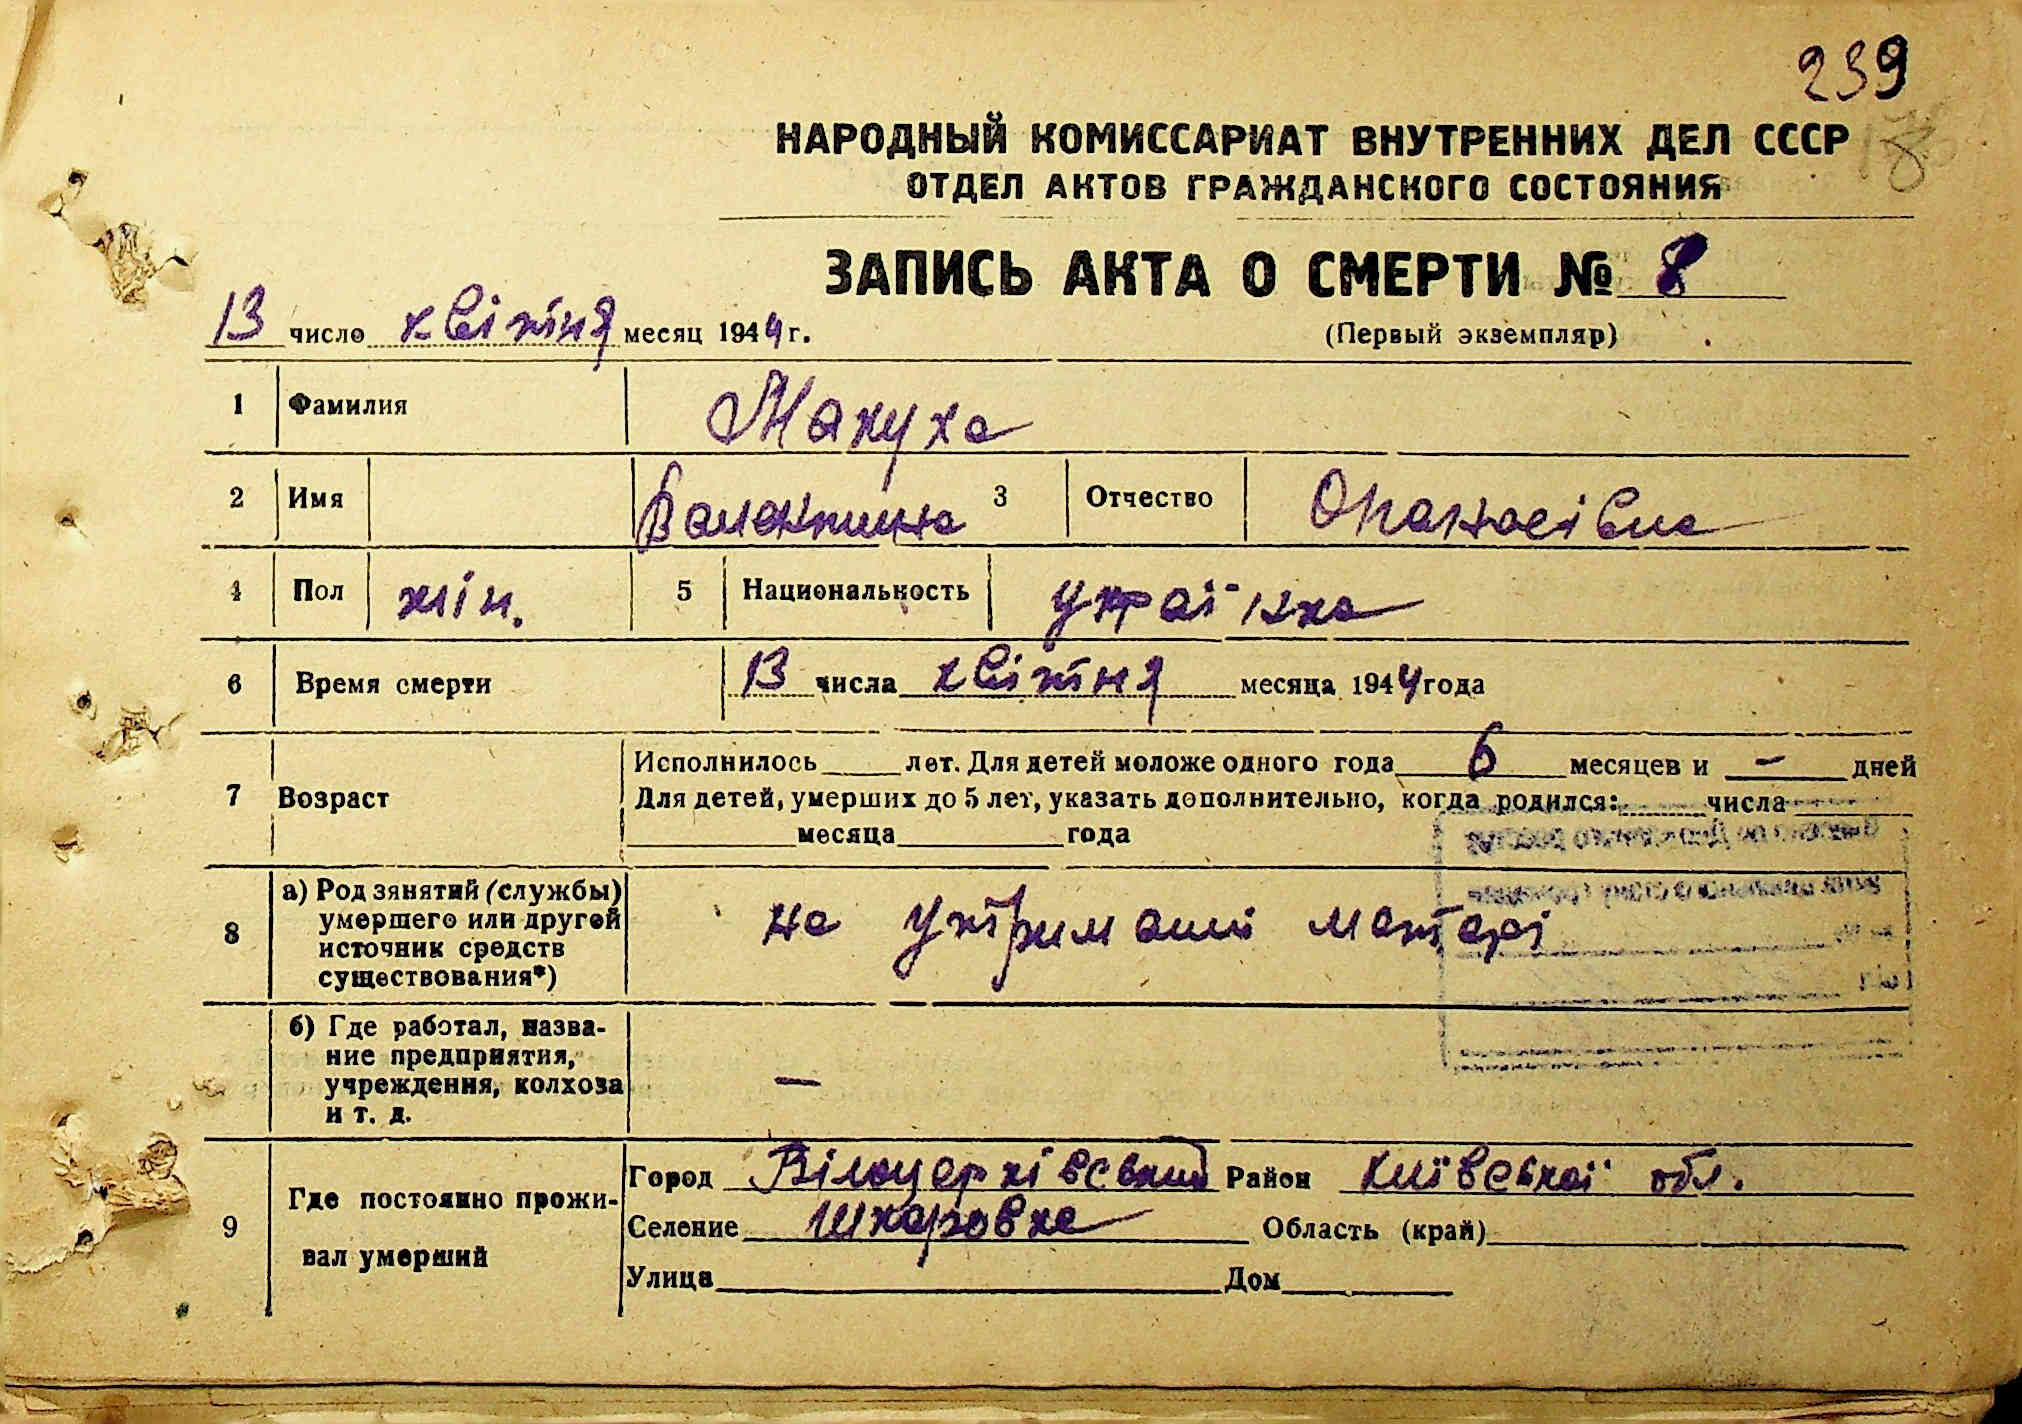 239
НАРОДНЫЙ КОМИССАРИАТ ВНУТРЕННИХ ДЕЛ СССР
ОТДЕЛ АКТОВ ГРАЖДАНСКОГО СОСТОЯНИЯ
ЗАПИСЬ АКТА О СМЕРТИ № 8
13 число квітня месяц 1944 г.
(Первый экземпляр)
1 Фамилия Макуха
2 Имя Валентина 3 Отчество Опанасівна
4 Пол жін. 5 Национальность українка
6 Время смерти 13 числа квітня месяца 1944 года
7 Возраст Исполнилось лет. Для детей моложе одного года 6 месяцев и - дней
Для детей, умерших до 5 лет, указать дополнительно, когда родился: числа
месяца года
8 а) Род занятий (службы) умершего или другой источник средств существования*) на утриманні матері
б) Где работал, название предприятия, учреждения, колхоза и т. д. —
9 Где постоянно проживал умерший
Город Білоцерківський Район Київської обл.
Селение Шкаровка Область (край)
Улица Дом